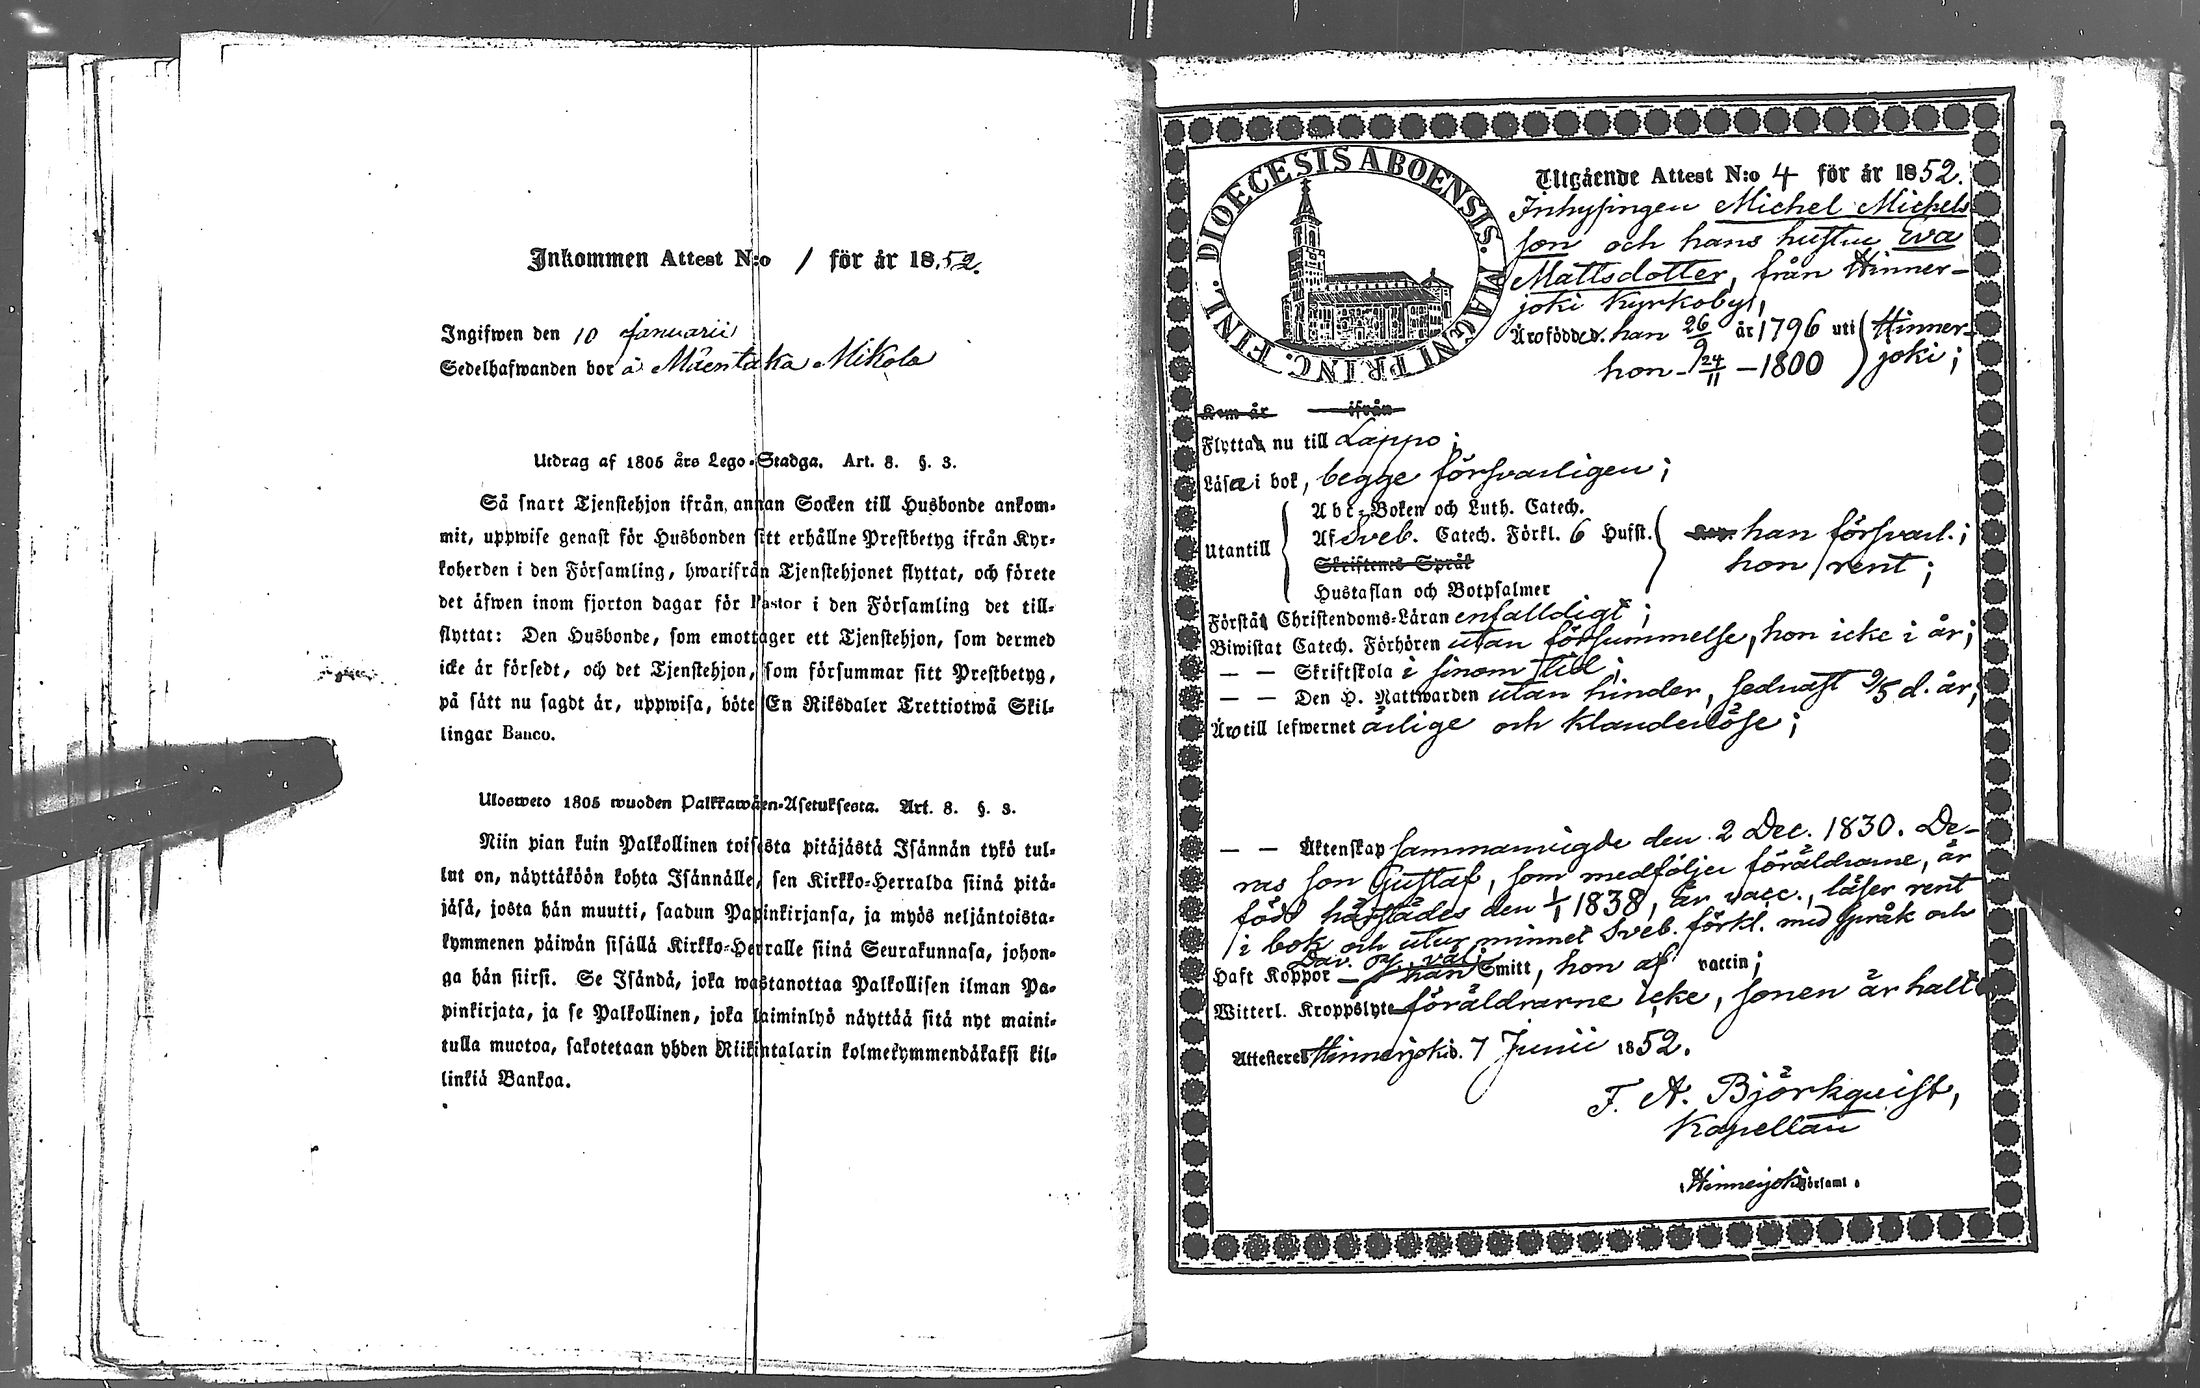 Inkommen Attest N:o 1 för år 1852.
Ingifwen den 10 Januarii
Sedelhafwanden bor å Mäentaka Mikola
Utdrag af 1805 års Lego-Stadga. Art. 8. §. 3.
Så snart Tjenstehjon ifrån annan Socken till Husbonde ankom-
mit, uppwise genast för Husbonden sitt erhållne Prestbetyg ifrån Kyr-
koherden i den Församling, hwarifrån Tjenstehjonet flyttat, och förete
det äfwen inom fjorton dagar för Pastor i den Församling det till-
flyttat: Den Husbonde, som emottager ett Tjenstehjon, som dermed
icke är försedt, och det Tjenstehjon, som försummar sitt Prestbetyg,
på sätt nu sagdt är, uppwisa, böte En Riksdaler Trettiotwå Skil-
lingar Banco.
Ulosweto 1805 wuoden Palkkawäen-Asetuksesta. Art. 8. §. 3.
Niin pian kuin Palkollinen toisesta pitäjästä Isännän tykö tul-
lut on, näyttäköön kohta Isännälle, sen Kirkko-Herralda siinä pitä-
jäsä, josta hän muutti, saadun Papinkirjansa, ja myös neljäntoista-
kymmenen päiwän sisällä Kirkko-Herralle siinä Seurakunnasa, johon-
ga hän siirsi. Se Isändä, joka wastanottaa Palkollisen ilman Pa-
pinkirjata, ja se Palkollinen, joka laiminlyö näyttää sitä nyt maini-
tulla muotoa, sakotetaan yhden Riikintalarin kolmekymmendäkaksi kil-
linkiä Bankoa.
DIOECESIS ABOENSIS. MAGNI PRINC. FINL.
Utgående Attest N:o 4 för år 1852.
Inhysingen Michel Michels
son och hans hustru Eva
Mattsdotter, från Hinner-
joki Kyrkoby,
Äro födde. han 26/9 år 1796 uti Hinner-
hon - 24/11 - 1800 joki;
Kom år ifrån
Flytta nu till Lappo;
Läsa i bok, begge försvarligen;
Utantill
Abc-Boken och Luth. Catech.
Af Sveb. Catech. Förkl. 6 Hufst. han försvarl.;
Skriftenes Språk hon rent;
Hustaflan och Botpsalmer
Förstå Christendoms-Läran enfalldigt;
Biwistat Catech. Förhören utan försummelse, hon icke i år;
— — Skriftskola i sinom tid;
— — Den H. Nattwarden utan hinder, sednast 9/5 d. år;
Äro till lefwernet ärlige och klanderlöse;
— — Äktenskap sammanvigde den 2 Dec. 1830. De-
ras son Gustaf, som medföljer föräldrarne, är
född härstädes den 1/1 1838, är vacc., läser rent
i bok och utur minnet Sveb. förkl. med Språk och
Dav. ps. väl;
Haft Koppor - han Smitt, hon af vaccin;
Witterl. Kroppslyte föräldrarne icke, sonen är halt
Attesteres Hinnerjoki d. 7 Junii 1852.
F. A. Björkqvist,
Kapellan
Hinnerjoki Församl.